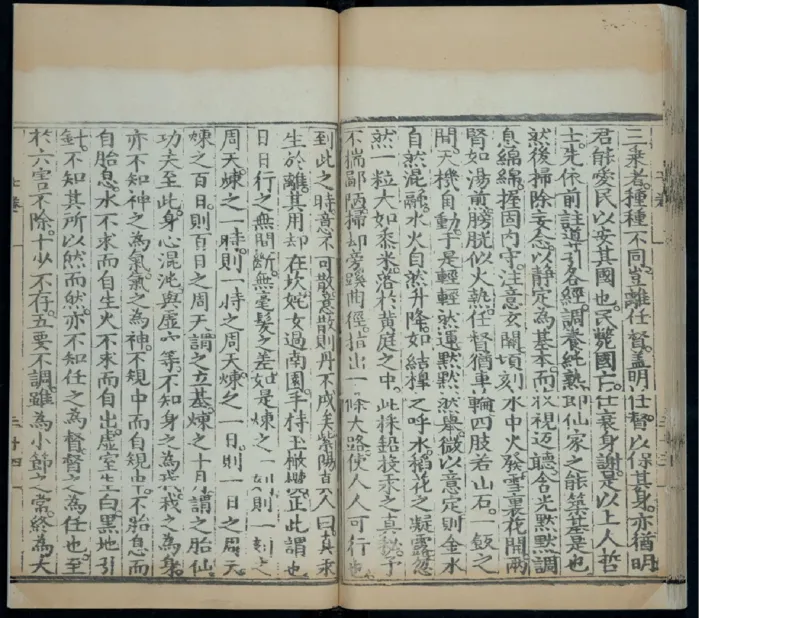 三乘者。種種不同。豈離任督。蓋明任督。以保其身。亦猶明
君能愛民以安其國也。民斃國亡。任衰身謝。是以上人哲
士。先依前註道引各經。調養純熟。即仙家之能築基是也。
然後掃除妄念。以靜定為基本。而收視返聽。含光默默。調
息綿綿。握固內守。注意玄關。頃刻水中火發。雪裏花開。兩
腎如湯煎。膀胱似火熱。任督猶車輪。四肢若山石。一飯之
間。天機自動。于是輕輕然運。默默然舉。微以意定。則金水
自然混融。水火自然升降。如桔槔之呼水。稻花之凝露。忽
然一粒大如黍米。落於黃庭之中。此採鉛投汞之真訣。予
不揣鄙陋。掃却旁蹊曲徑。指出一條大路。使人人可行也。
到此之時。意不可散。意散則丹不成矣。紫陽真人曰。真汞
生於離。其用却在坎。姹女過南園。手持玉橄欖。正此謂也。
日日行之無間斷。無毫髮之差。如是煉之一刻。則一刻之
周天。煉之一時。則一時之周天。煉之一日。則一日之周天。
煉之百日。則百日之周天。謂之立基。煉之十月。謂之胎仙。
功夫至此。身心混沌與虛空等。不知身之為我。我之為身。
亦不知神之為氣。氣之為神。不規中而自規中。不胎息而
自胎息。水不求而自生。火不求而自出。虛室生白。黑地引
針。不知其所以然而然。亦不知任之為督。督之為任也。至
於六害不除。十少不存。五要不調。雖為小節之常。終為大